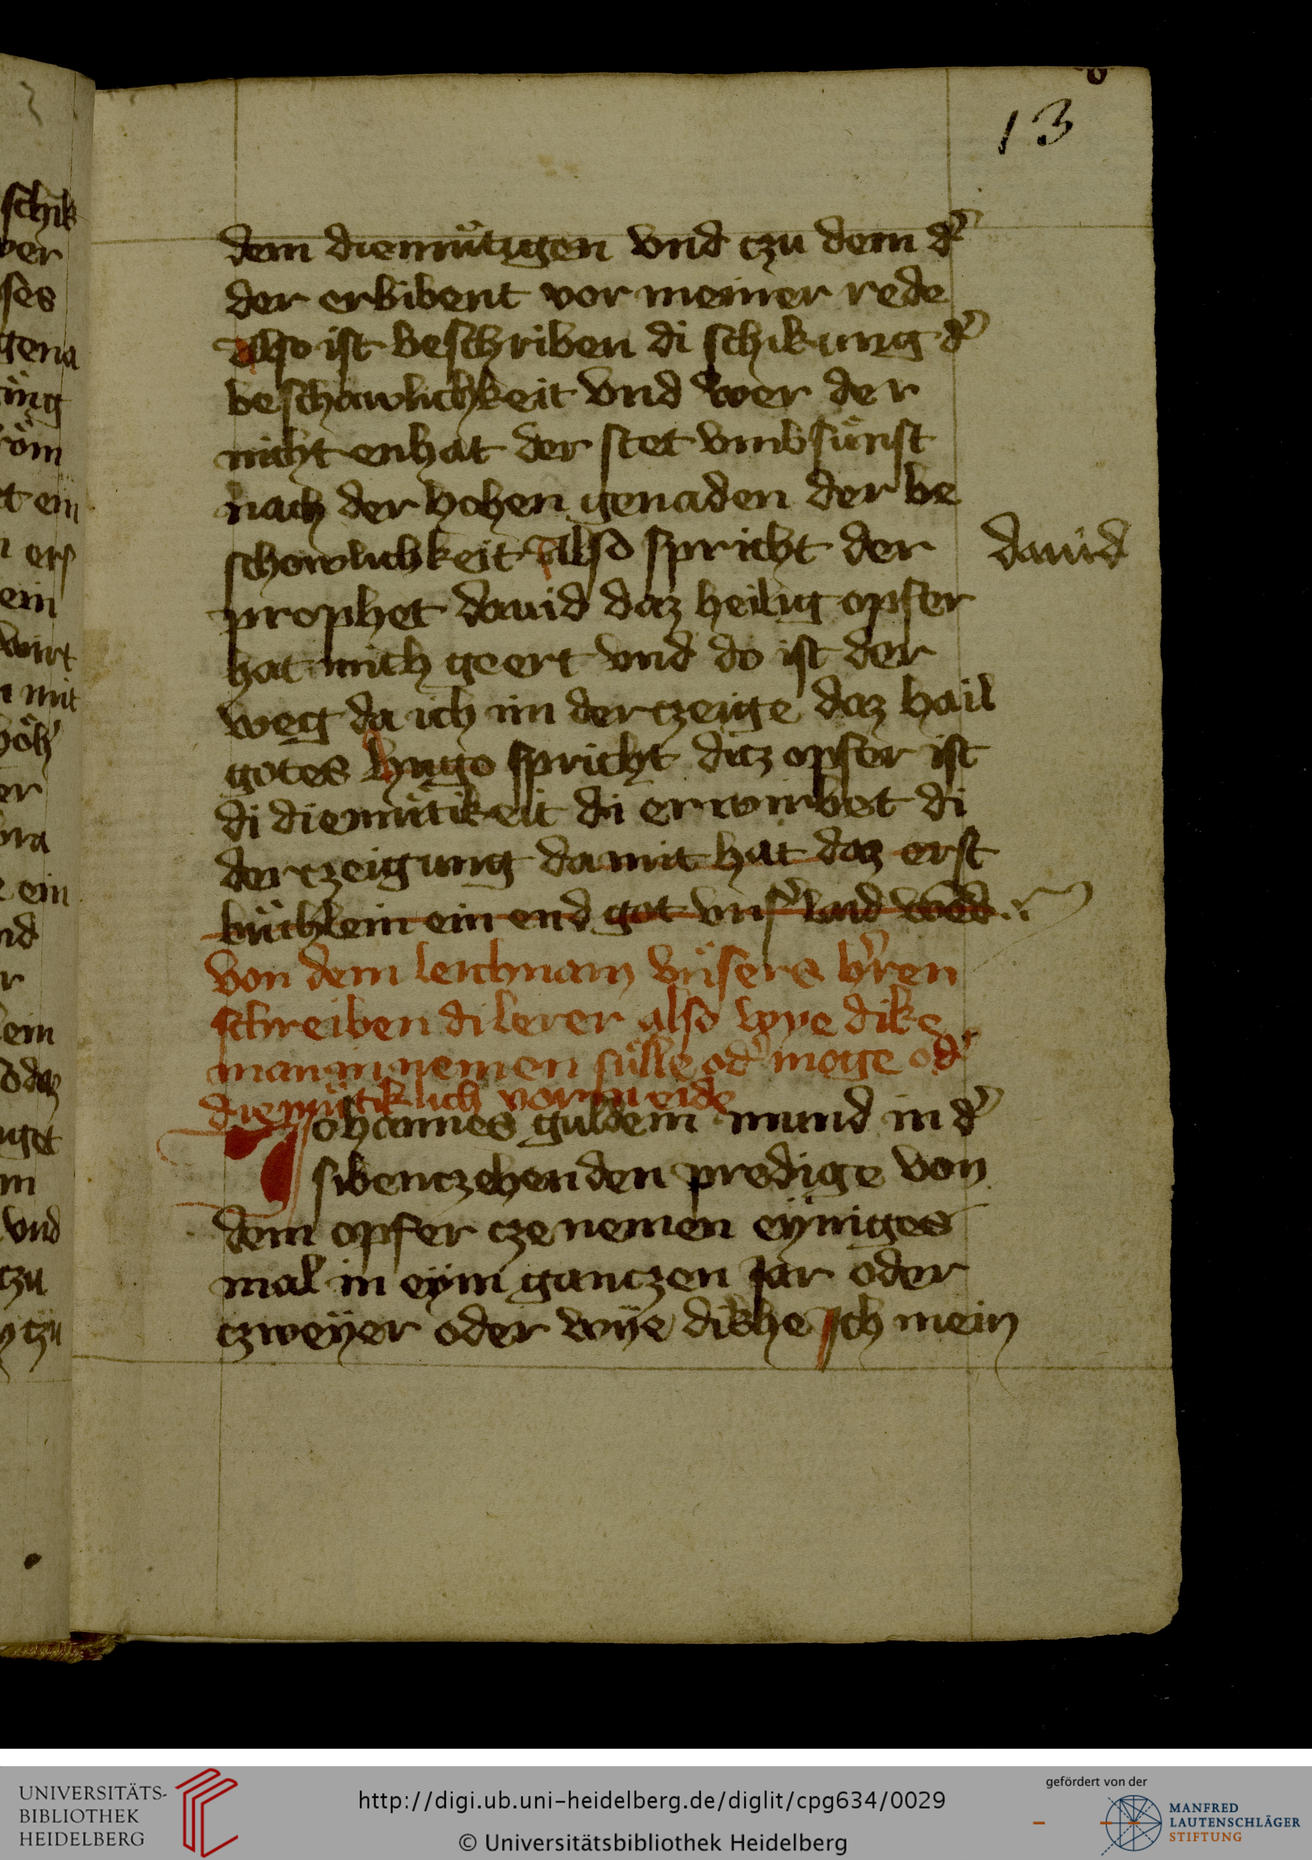 13
dem diemuͤtigen vnd czu dem dˀ
der erbibent vor meiner rede
Also ist beschriben di schikung dˀ
beschawlichkeit vnd wer der
nicht enhat der stet vmbsuͤnst
nach der hohen genaden der be
schowlichkeit Also spricht der
dauid
prophet dauid daz heilig opfer
hat mich geert vnd do ist der
weg da ich im derczeige daz hail
gotes hugo spricht ditz opfer ist
di diemuͤtikeit di erwirbet di
derczeigung damit hat daz erst
buͤchlein ein end got vnsˀ laid
von dem leichnam vnsers hˀren
schreiben di lerer also wye dike
man in nemen suͤlle odˀ moge odˀ
diemuͤtiklich vormeide
Johannes guldem mund in dˀ
sibenczehenden predige von
dem opfer cze nemen eyniges
mal in eÿm ganczen Jar oder
czweÿer oder wÿe dikhe Ich mein
schik
ver
ses
ein
wirt
mit
er
ein
ein
uget
vnd
czu
UNIVERSITÄTS-
BIBLIOTHEK
HEIDELBERG
http://digi.ub.uni-heidelberg.de/diglit/cpg634/0029
© Universitätsbibliothek Heidelberg
gefördert von der
MANFRED
LAUTENSCHLÄGER
STIFTUNG